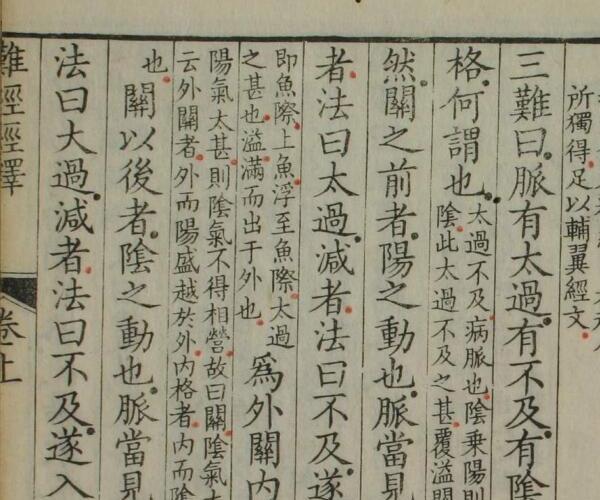 所獨得足以輔翼經文
三難曰脈有太過有不及有陰
格何謂也
太過不及病脈也陰乘陽則
陰此太過不及之甚覆溢
然關之前者陽之動也脈當見
者法曰太過減者法曰不及遂
即魚際上魚浮至魚際太過
之甚也溢滿而出于外也
為外關內
陽氣太甚則陰氣不得相營故曰關陰氣
云外關者外而陽盛越於外內格者內而陰
也
關以後者陰之動也脈當見
法曰大過減者法曰不及遂入
難經經釋
卷上